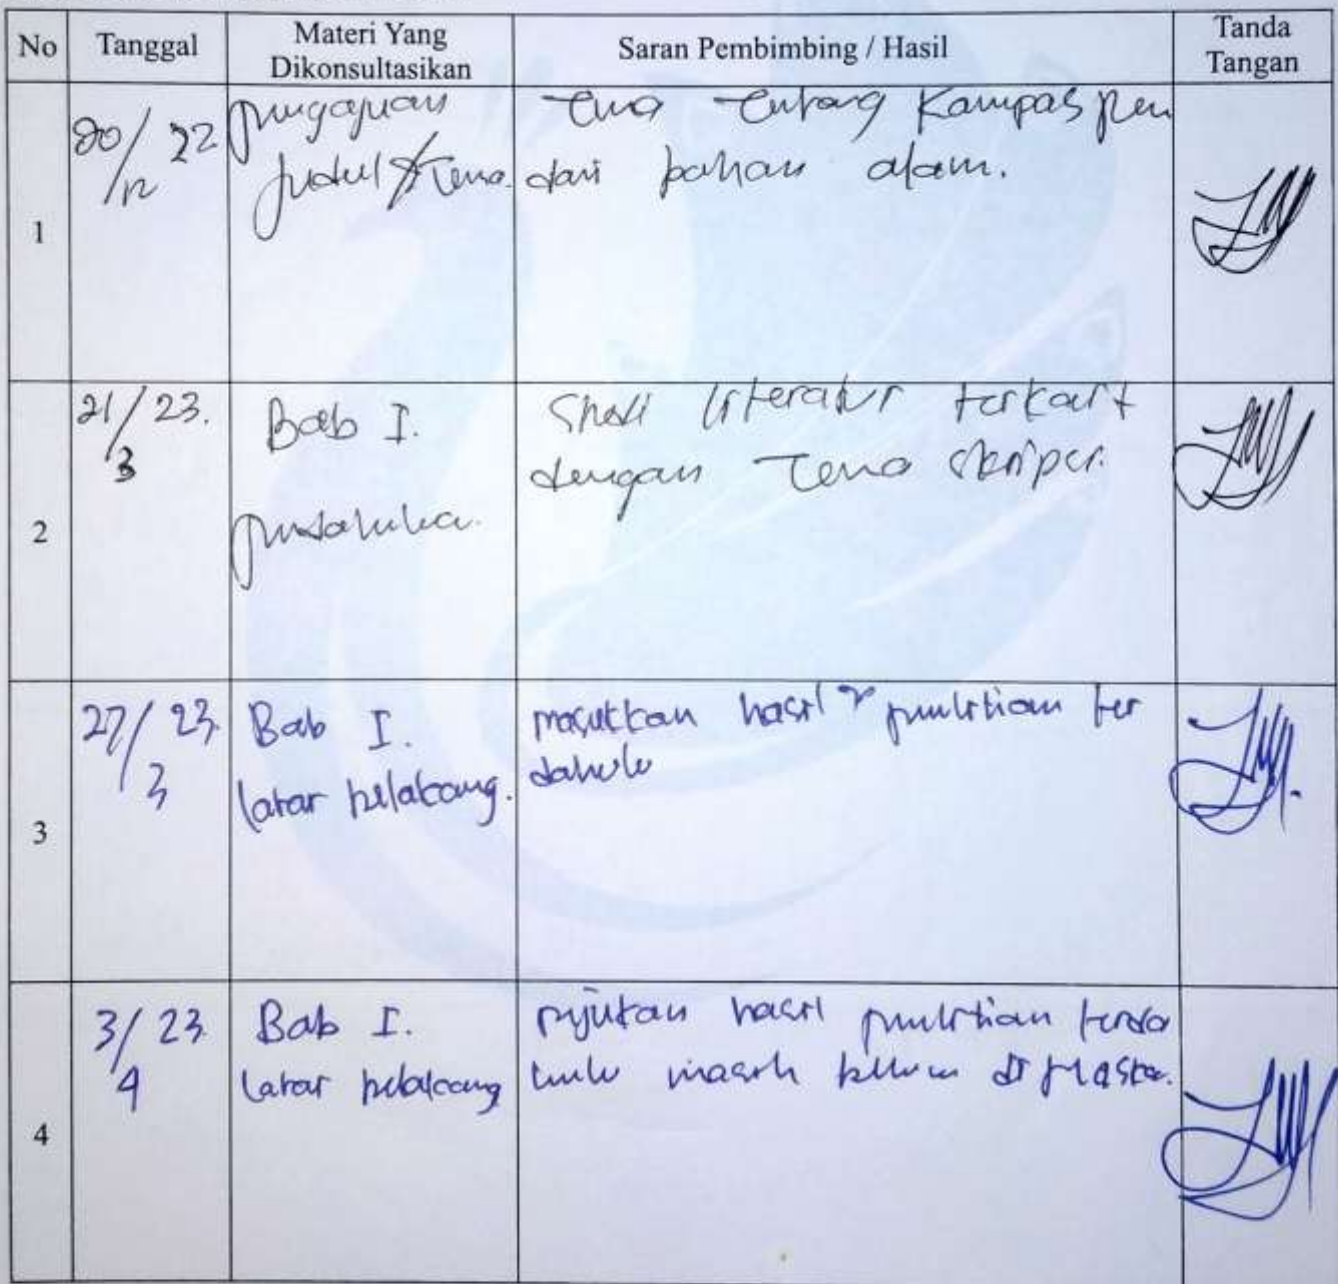 No Tanggal Materi Yang Dikonsultasikan Saran Pembimbing / Hasil Tanda Tangan
1
20/12 22
pengajuan
judul / Tema.
Tema tentang Kampas rem
dari bahan alam.
2
21/3 23.
Bab I.
Studi literatur terkait
dengan Tema skripsi.
3
27/3 23.
Bab I.
latar belakang.
masukkan hasil penelitian ter
dahulu
4
3/4 23.
Bab I.
latar belakang
rujukan hasil penelitian terda
hulu masih belum di